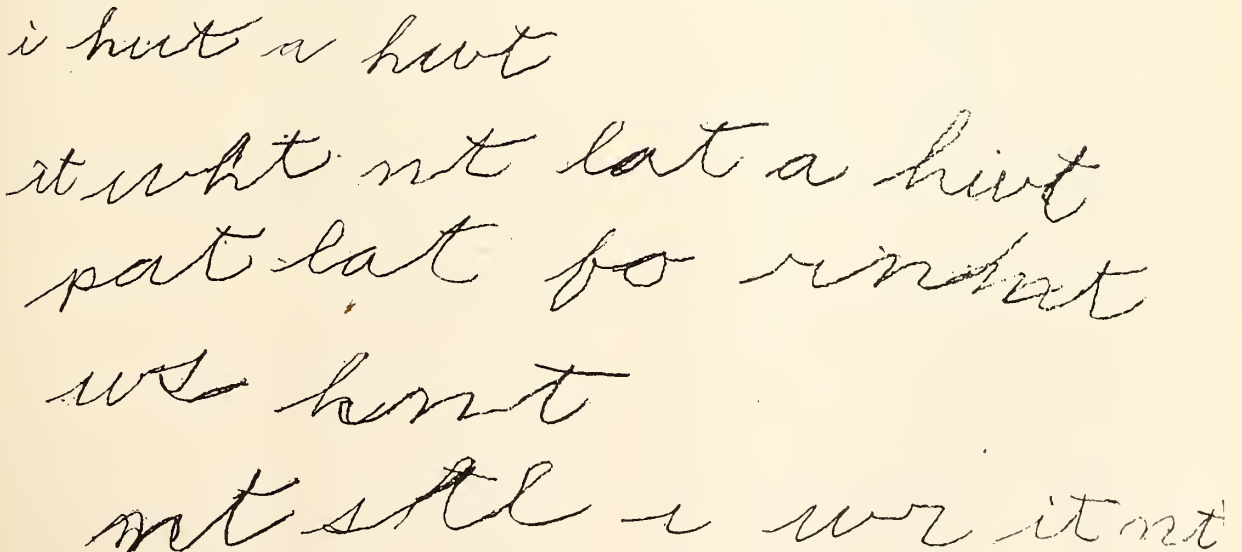 i hut a hut
it wht nt lat a hiwt
pat lat fo
ws hnt
nt stl i wr it nt